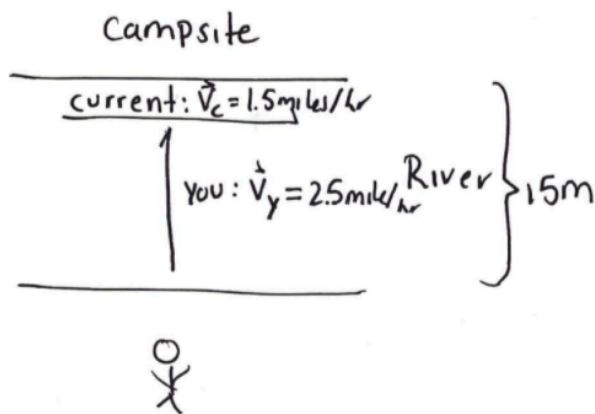 Campsite
current: V⃗c = 1.5 miles/hr
You: V⃗y = 2.5 mile/hr
River
15m